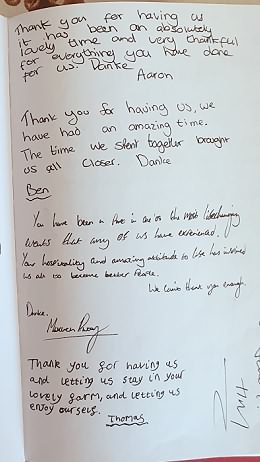 Thank you for having us
it has been an absolutely
lovely time and very thankful
for everything you have done
for us. Danke
Aaron
Thank you for having us, we
have had an amazing time.
The time we spent together brought
us all closer. Danke
Ben
You have been a part in one of the most lifechanging
events that any of us have experienced.
Your hospitality and amazing attitude to life has inspired
us all to become better people.
We can't thank you enough.
Danke.
Thank you for having us
and letting us stay in your
lovely farm, and letting us
enjoy ourselves.
Thomas